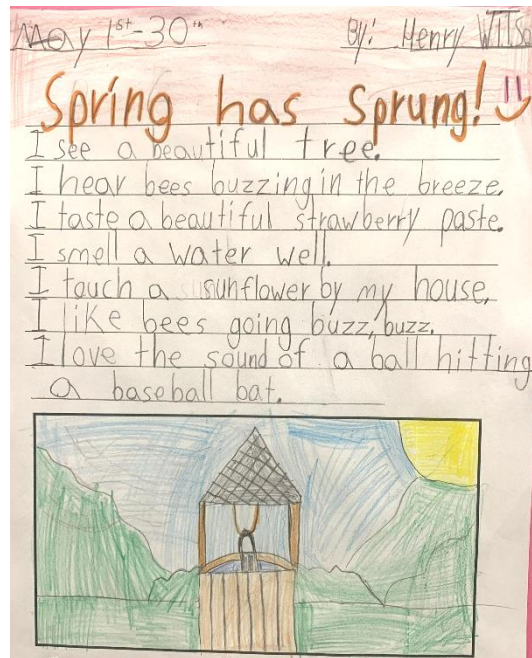 May 1st-30th
By: Henry
Spring has Sprung!
I see a beautiful tree.
I hear bees buzzing in the breeze.
I taste a beautiful strawberry paste.
I smell a water well.
I touch a sunflower by my house.
I like bees going buzz, buzz.
I love the sound of a ball hitting
a baseball bat.